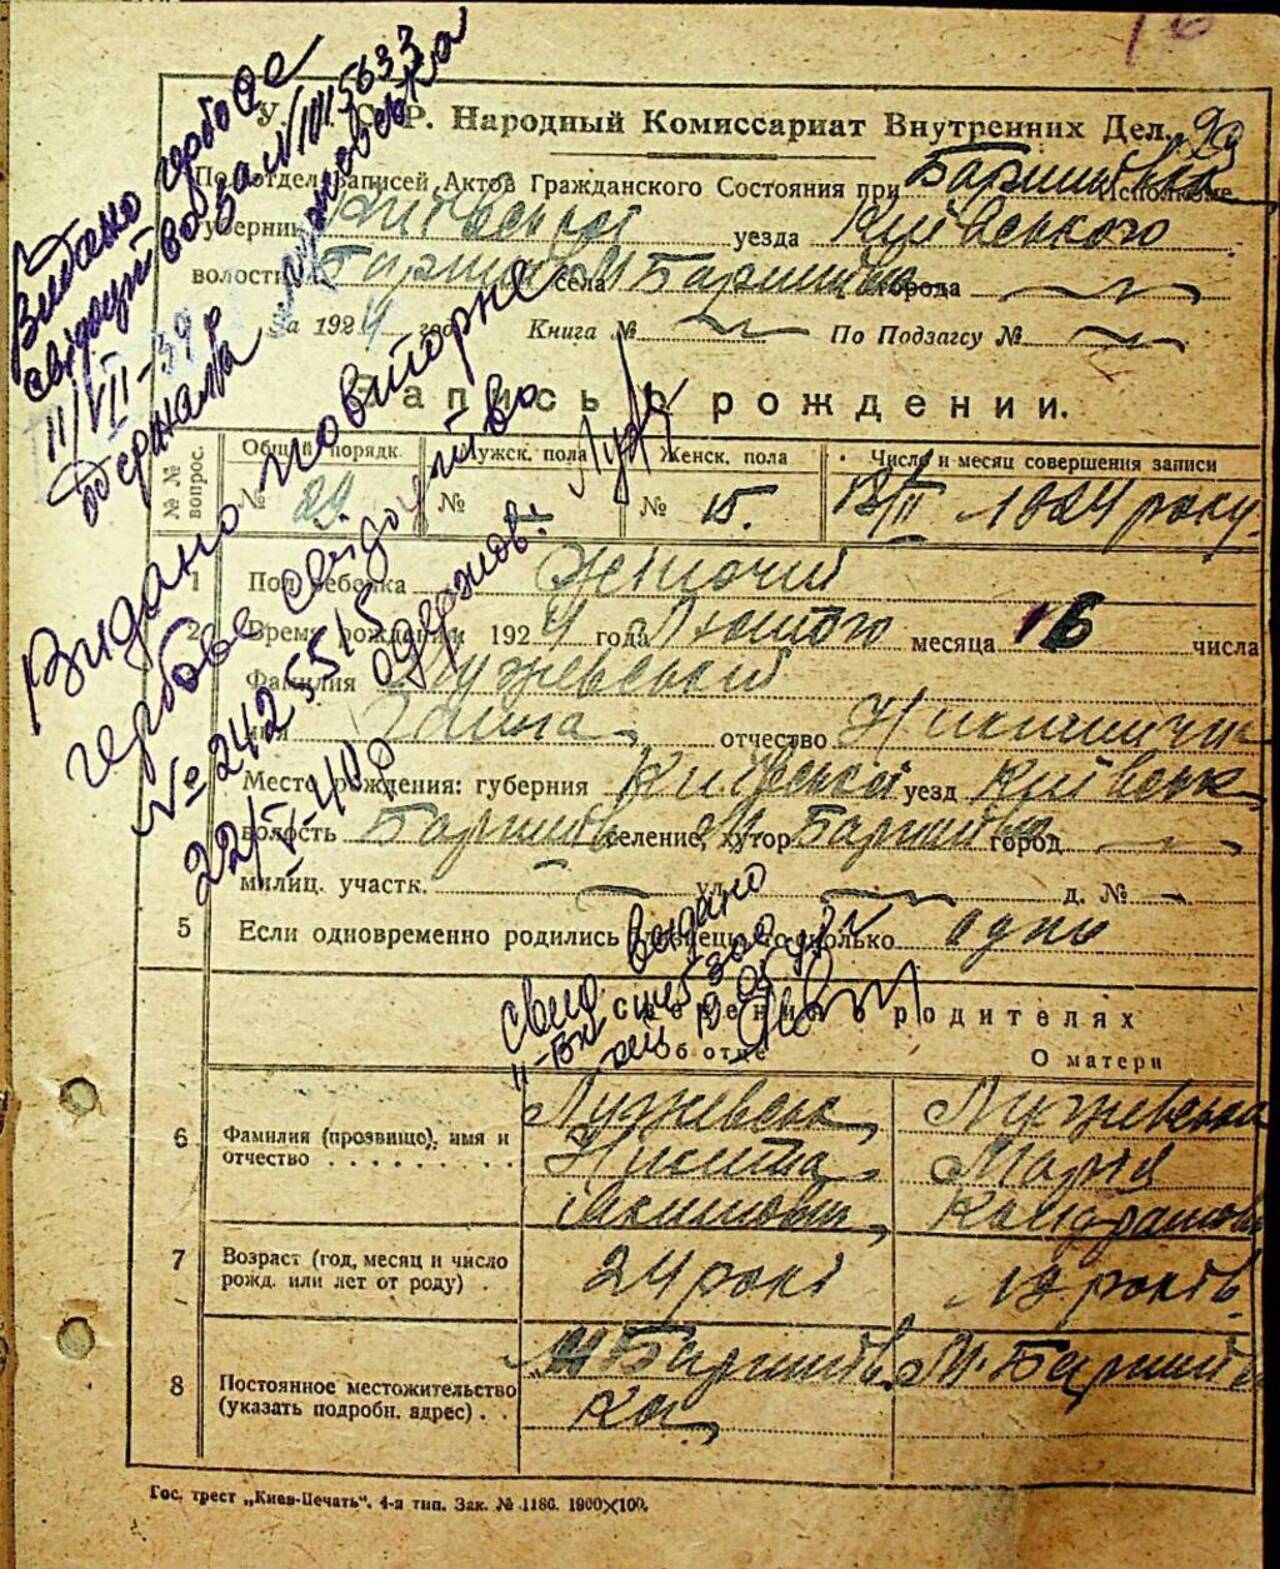 16
У. С. С. Р. Народный Комиссариат Внутренних Дел. 29
Подотдел Записей Актов Гражданского Состояния при Баришівськ Исполкоме
Губернии Київської уезда Київського
волости Баришів села М Баришівка города
За 1924 год Книга № По Подзагсу №
Запись о рождении.
№ № вопрос. Общий порядк. Мужск. пола Женск. пола Число и месяц совершения записи
№ 29. № № 15. /II 1924 року.
1 Пол ребенка Жіночий
2 Время рождения 1924 года Лютого месяца 16 числа
Фамилия Лужевський
имя Ганна, отчество
Место рождения: губерния Київської уезд Київськ
волость Баришів селение, хутор М Баришівка город
милиц. участк. ул. д. №
5 Если одновременно родились близнецы, то сколько одно
Сведения о родителях
Об отце О матери
6 Фамилия (прозвище), имя и отчество Лужевськ Никита Якимович, Лужевська Марія Кондратов
7 Возраст (год, месяц и число рожд. или лет от роду) . 24 роки років
8 Постоянное местожительство (указать подробн. адрес) . . М Баришівка М. Баришів
Гос. трест „Киев-Печать“. 4-я тип. Зак. № 1186. 1900×100.
Видано гербове
свідоцтво
III/VII-39 р
одержала
Видано повторне
гербове свідоцтво
№ 242 5515
22/V-40 р одержав:
свид. выдано